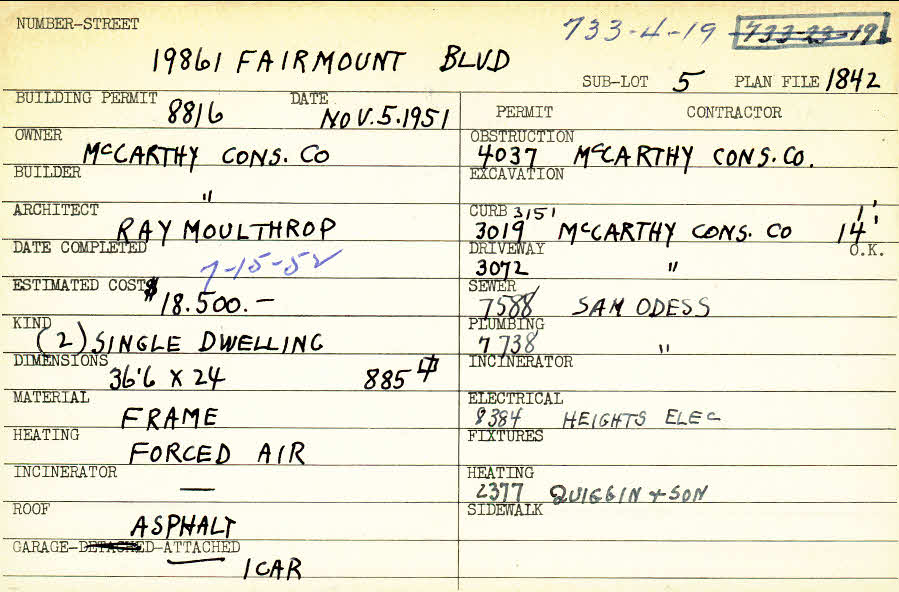 NUMBER-STREET
733-4-19 733-23-19
19861 FAIRMOUNT BLVD
SUB-LOT 5 PLAN FILE 1842
BUILDING PERMIT 8816 DATE NOV.5.1951
OWNER
McCARTHY CONS. CO
BUILDER
"
ARCHITECT
RAY MOULTHROP
DATE COMPLETED
7-15-52
ESTIMATED COST $
18.500.—
KIND
(2) SINGLE DWELLING
DIMENSIONS
36'6 X 24 885
MATERIAL
FRAME
HEATING
FORCED AIR
INCINERATOR
—
ROOF
ASPHALT
GARAGE-DETACHED-ATTACHED
1 CAR
PERMIT CONTRACTOR
OBSTRUCTION
4037 McCARTHY CONS. CO.
EXCAVATION
CURB 3151 1'
3019 McCARTHY CONS. CO 14'
DRIVEWAY O.K.
3072 "
SEWER
7588 SAM ODESS
PLUMBING
7738 "
INCINERATOR
ELECTRICAL
8384 HEIGHTS ELEC
FIXTURES
HEATING
2377 QUIGGIN + SON
SIDEWALK